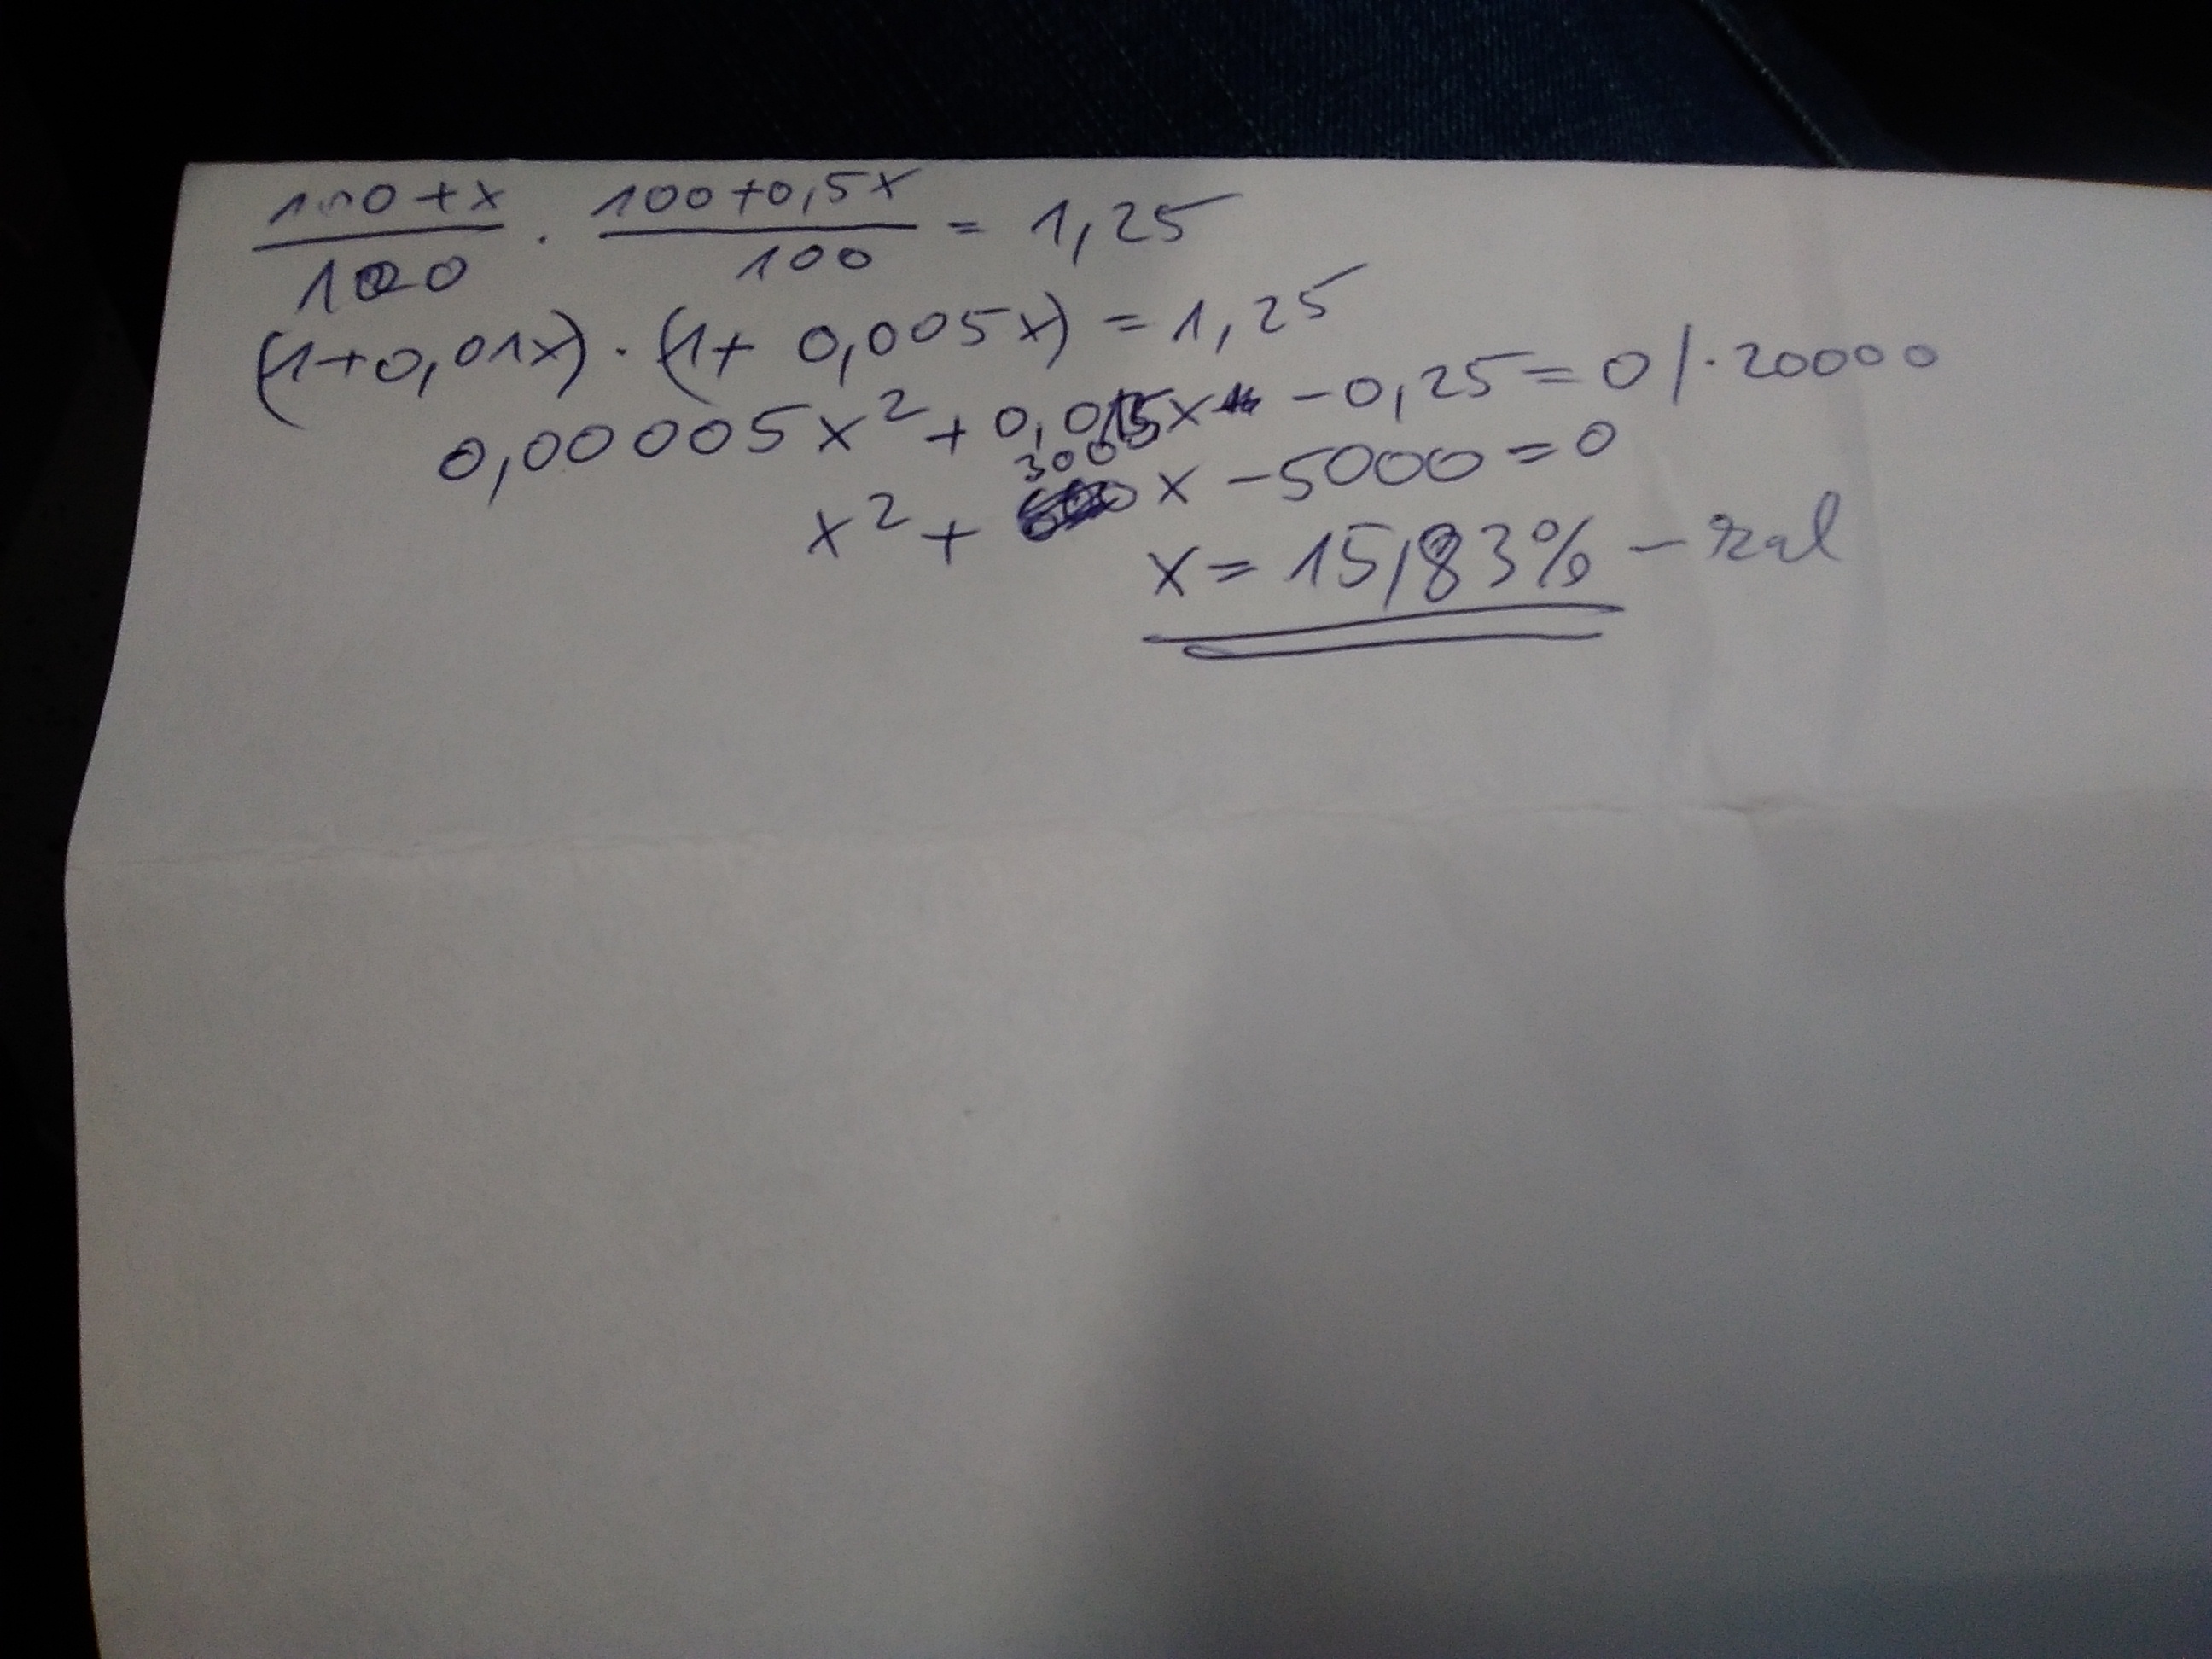 100+x/100 · 100+0,5x/100 = 1,25
(1+0,01x) · (1+ 0,005x) = 1,25
0,00005x² + 0,015x - 0,25 = 0 /·20000
x² + 300x - 5000 = 0
x = 15,83%